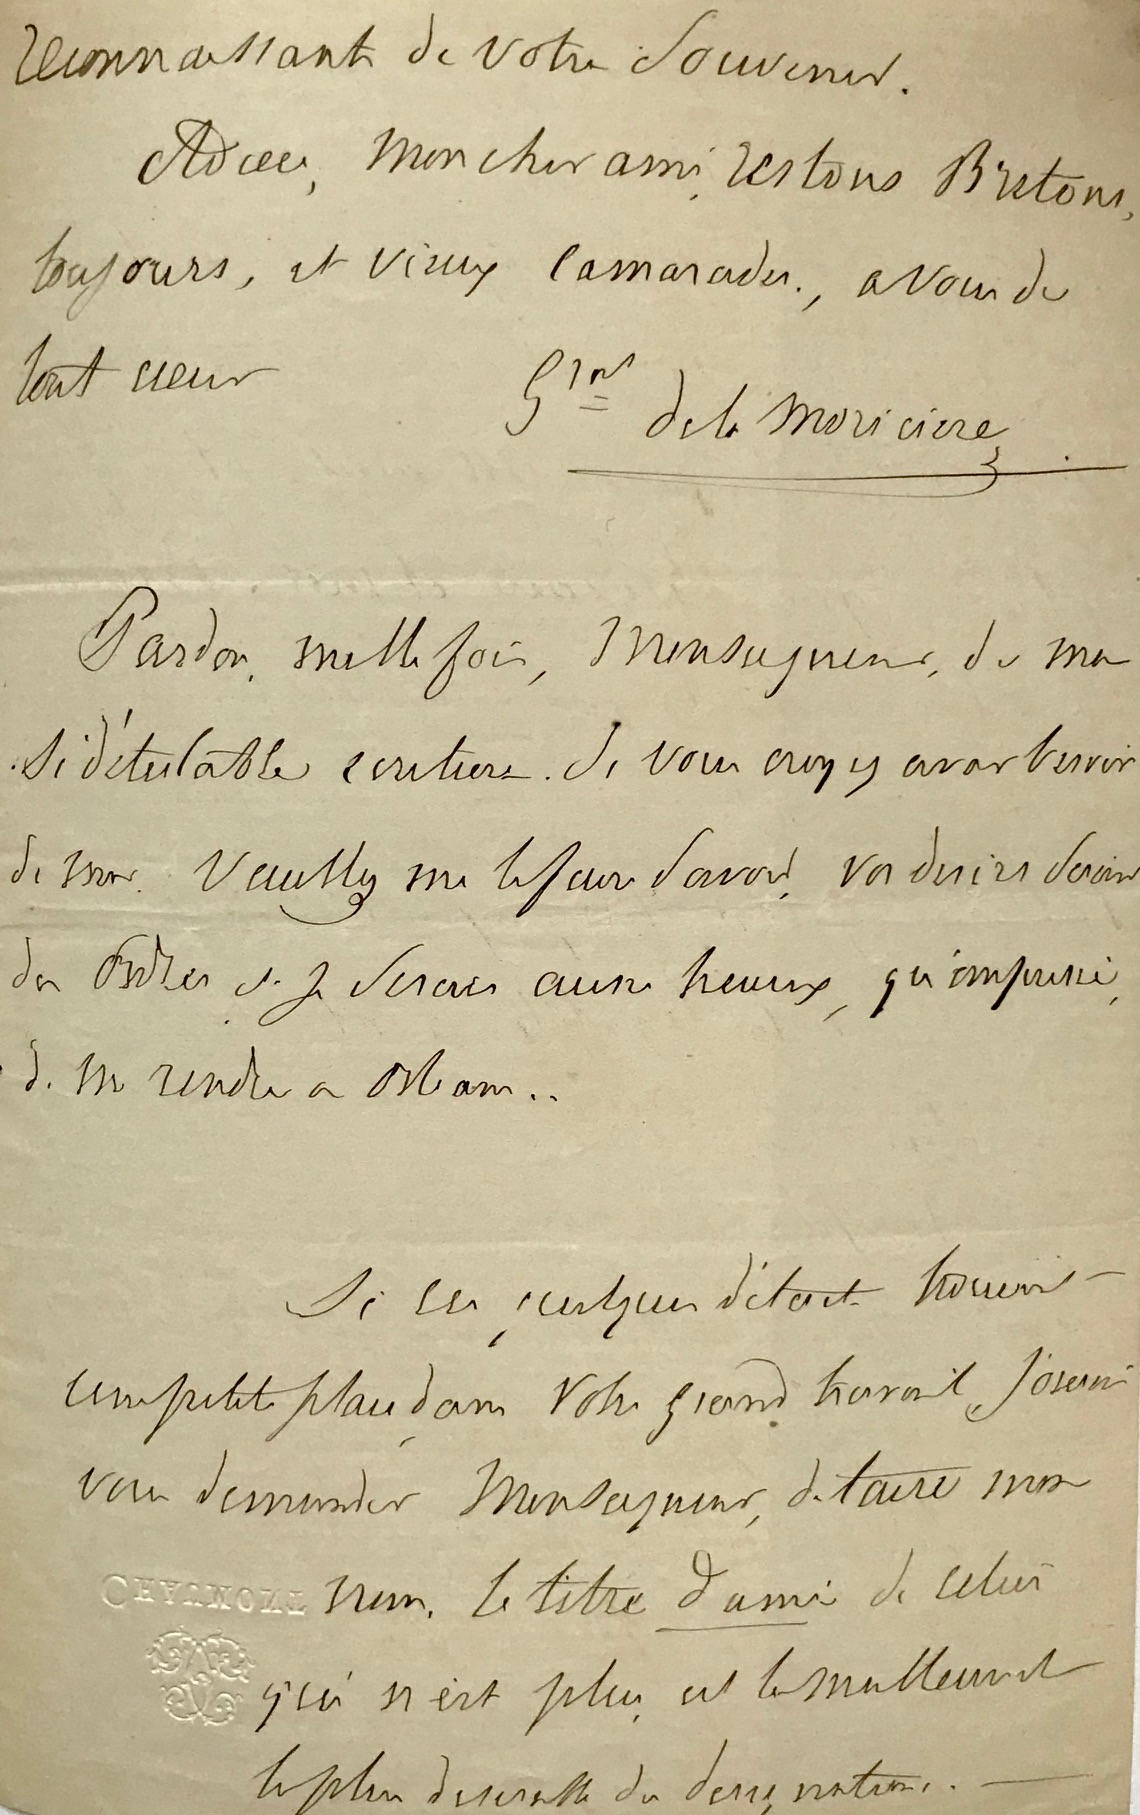 reconnaissant de votre souvenir.
Adieu, mon cher ami, restons Bretons,
toujours, et vieux camarades., a vous de
tout cœur
Gral de la Moriciere
Pardon, mille fois, Monseigneur, de ma
si détestable ecriture. Si vous croyez avoir besoin
de moi. Veuillez me le faire savoir, vos desirs seront
des Ordres et je serais aussi heureux, qu'empressé,
de me rendre a Orleans..
Si ces quelques détails trouvent
une petite place dans votre grand travail, j'oserai
vous demander Monseigneur, de taire mon
nom. le titre d'ami de celui
qui n'est plus, est le meilleur et
le plus desirable des designations. —
CHAUMONT